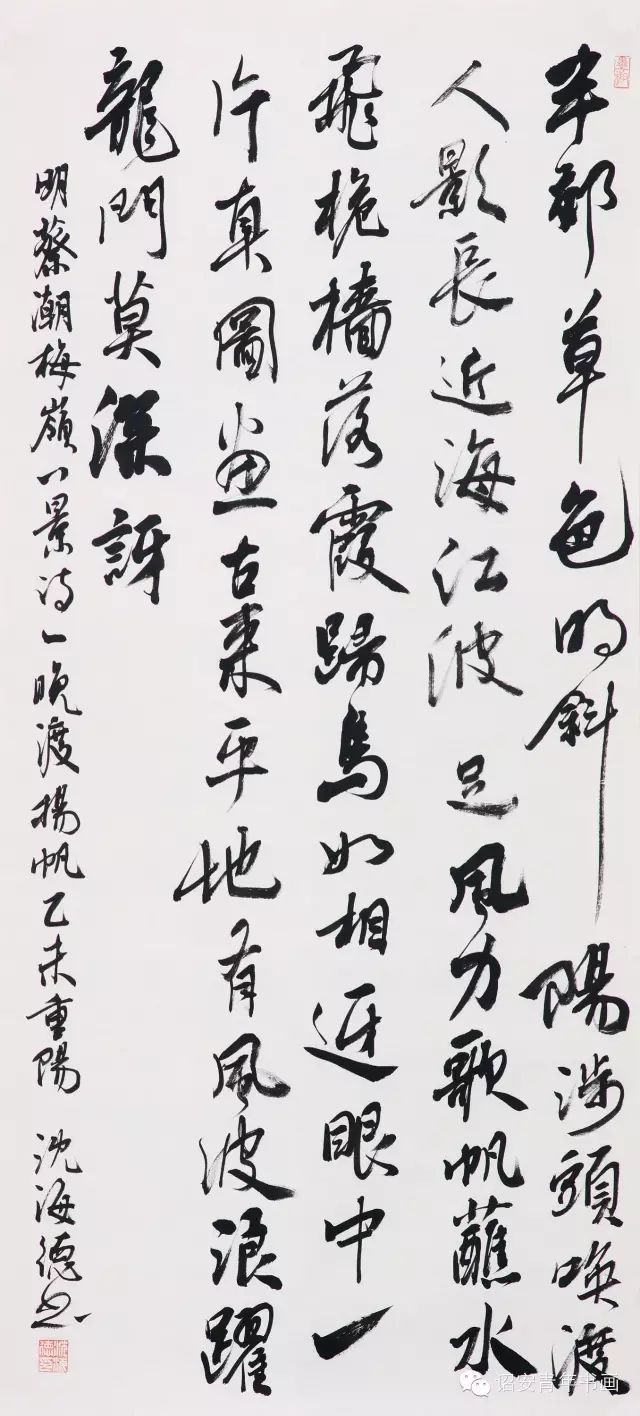 半郭草色明斜陽涉頭喚渡
人影長近海江波足風力歌帆蘸水
飛桅檣落霞歸鳥如相迓眼中一
片真圖画古來平地有風波浪躍
龍門莫深訝
明蔡潮梅嶺八景诗一晚渡揚帆乙未重陽 沈海德书
诏安青年书画